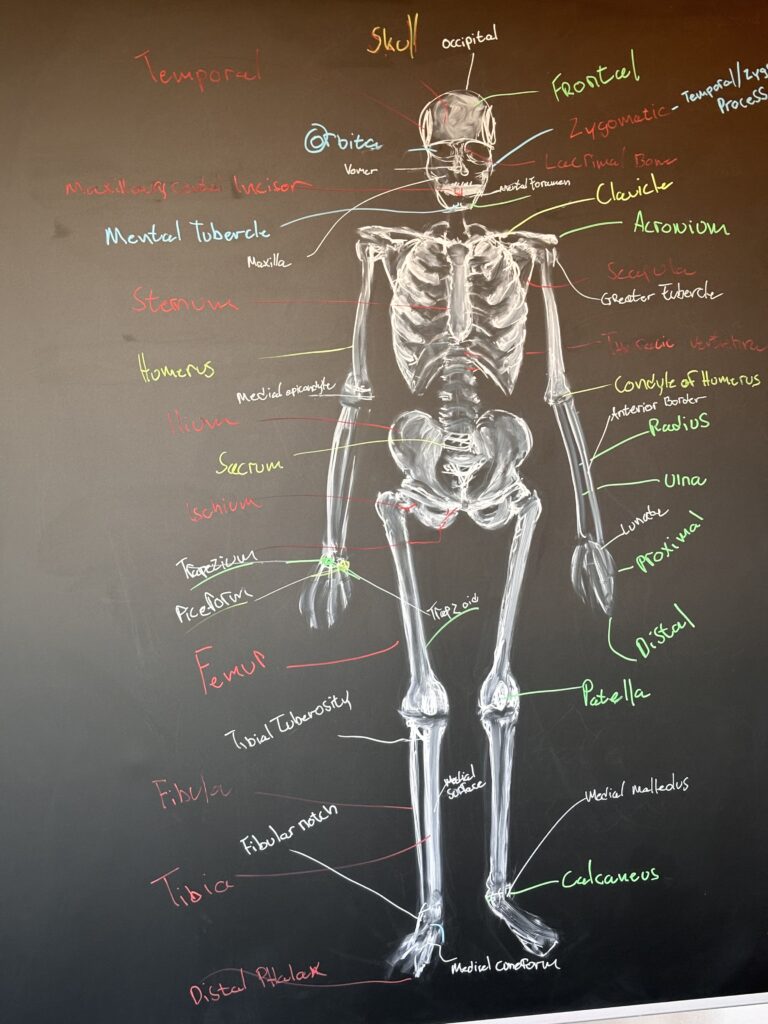 Skull
Occipital
Temporal
Frontal
Zygomatic - Temporal/Zyg
Process
Orbita
Vomer
Lacrimal Bone
Incisor
Mental Foramen
Clavicle
Mental Tubercle
Acromium
Maxilla
Scapula
Greater Tubercle
Sternum
Homerus
Medial epicondyle
Condyle of Homerus
Anterior Border
Ilium
Radius
Sacrum
Ulna
Ischium
Lunate
Trapezium
Proximal
Piceform
Trapzoid
Distal
Femur
Patella
Tibial Tuberosity
Medial
surface
Fibula
Medial malleolus
Fibular notch
Tibia
Calcaneus
Medical cuneform
Distal Phalax